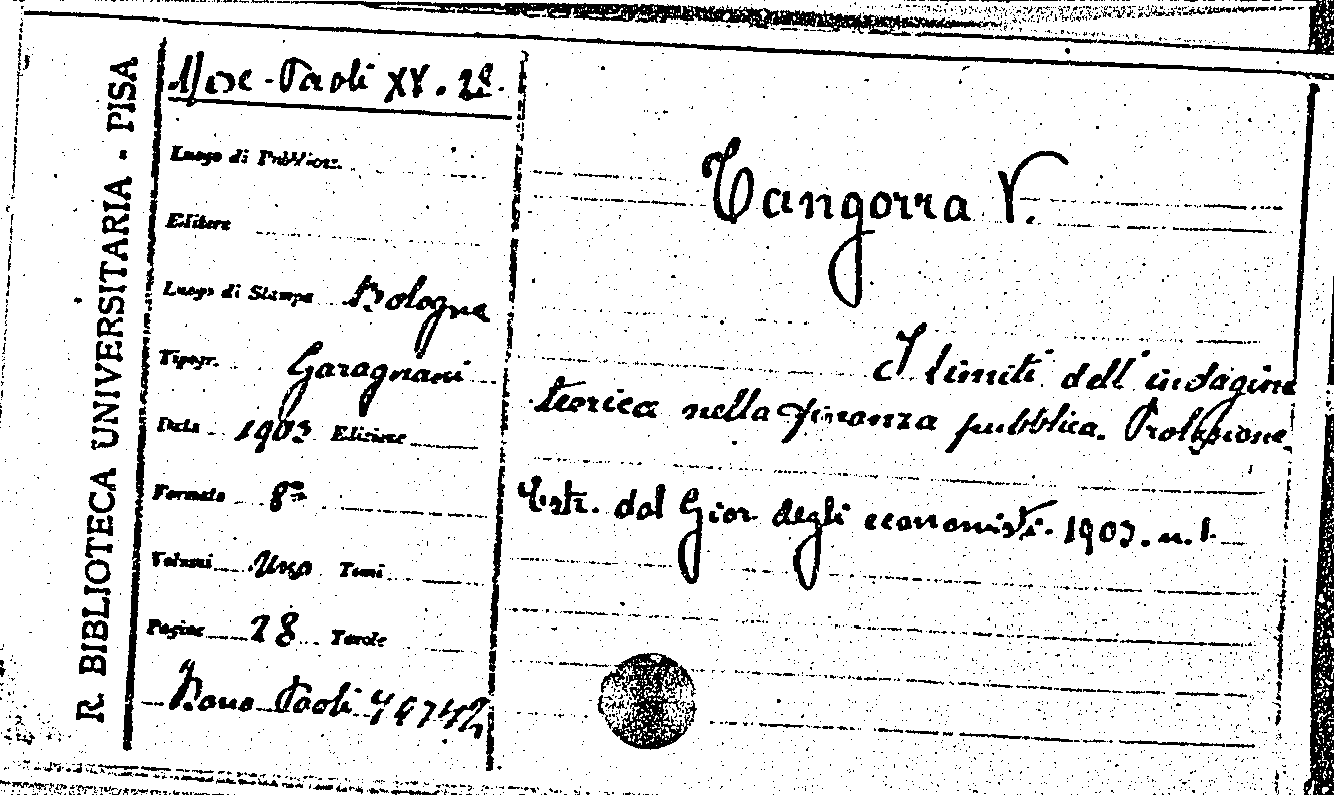 R. BIBLIOTECA UNIVERSITARIA - PISA
Misc - Paoli XX. 28.
Luogo di Pubblicaz.
Editore
Luogo di Stampa Bologna
Tipogr. Garagnani
Data 1903 Edizione
Formato 8º
Volumi Uno Tomi
Pagine 28 Tavole
Dono Paoli
Tangorra V.
I limiti dell'indagine
teorica nella finanza pubblica. Prolusione.
Estr. dal Gior. degli economisti. 1903. n. 1.